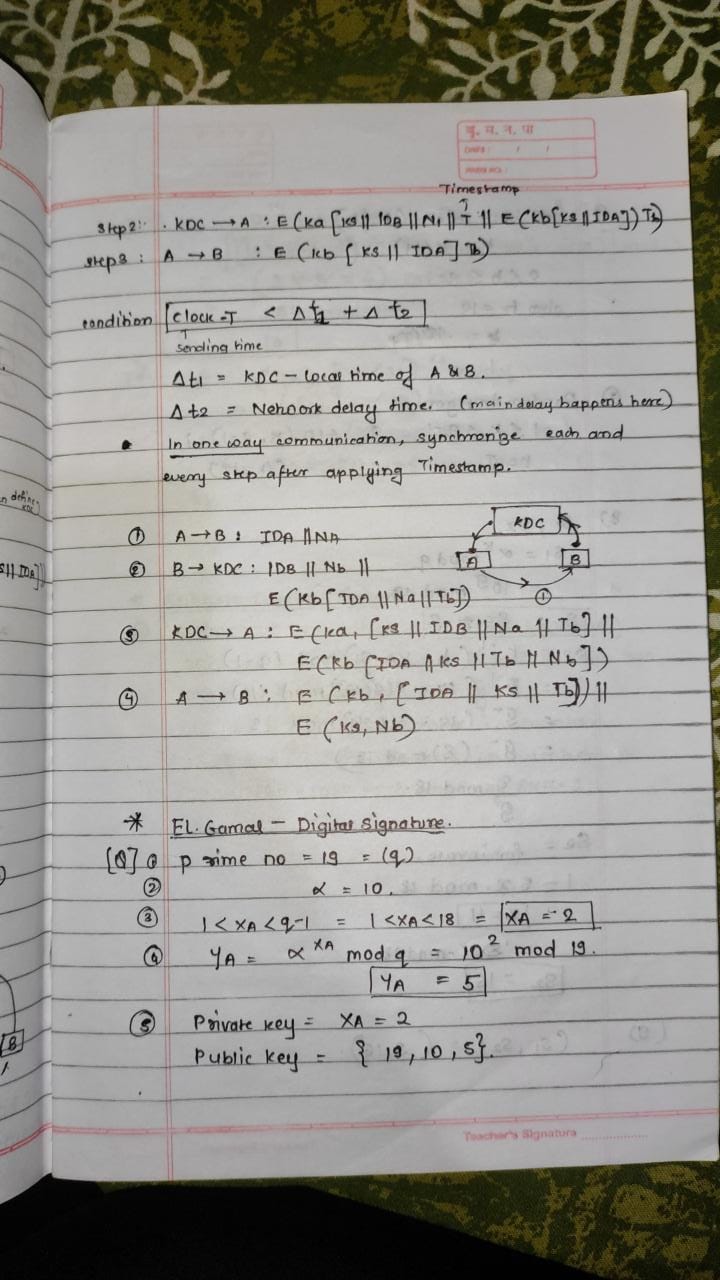 बृ. म. न. पा
DATE: / /
Timestamp
↑
Step2:- . KDC → A : E(Ka [Ks || IDB || N1 || T || E(Kb[Ks || IDA]) Tb)
Step3 : A → B : E (Kb [ Ks || IDA] Tb)
condition clock -T < Δt1 + Δt2
↑
sending time
Δt1 = KDC - local time of A & B.
Δt2 = Network delay time. (main delay happens here)
• In one way communication, synchronize each and
every step after applying Timestamp.
n define
KDC
s || IDA]
① A → B : IDA || NA
② B → KDC : IDB || Nb ||
E(Kb [IDA || Na || Tb])
KDC
A B
①
③ KDC → A : E(Ka, [Ks || IDB || Na || Tb] ||
E(Kb [IDA || Ks || Tb || Nb])
④ A → B : E (Kb, [IDA || Ks || Tb]) ||
E (Ks, Nb)
* EL. Gamal - Digital Signature.
[Q] ① prime no = 19 = (q)
② α = 10.
③ 1 < XA < q-1 = 1 < XA < 18 = XA = 2
④ YA = α^XA mod q = 10² mod 19.
YA = 5
⑤ Private key = XA = 2
Public key = { 19, 10, 5}.
B
Teacher's Signature ..................